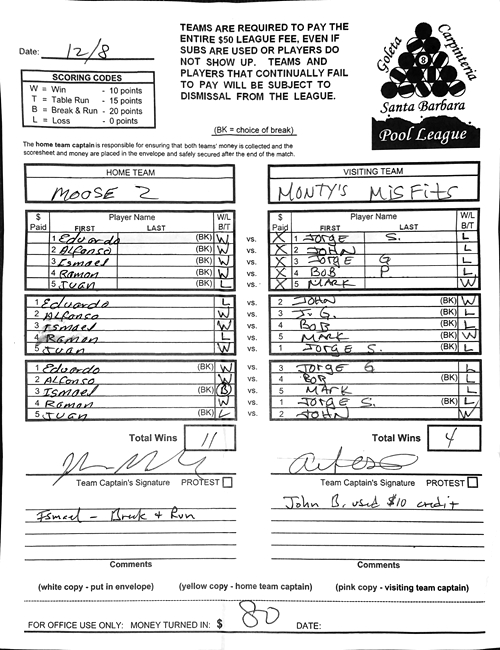 Date: 12/8
TEAMS ARE REQUIRED TO PAY THE
ENTIRE $50 LEAGUE FEE, EVEN IF
SUBS ARE USED OR PLAYERS DO
NOT SHOW UP. TEAMS AND
PLAYERS THAT CONTINUALLY FAIL
TO PAY WILL BE SUBJECT TO
DISMISSAL FROM THE LEAGUE.
(BK = choice of break)
SCORING CODES
W = Win - 10 points
T = Table Run - 15 points
B = Break & Run - 20 points
L = Loss - 0 points
Goleta Carpinteria
8
Santa Barbara
Pool League
The home team captain is responsible for ensuring that both teams' money is collected and the
scoresheet and money are placed in the envelope and safely secured after the end of the match.
HOME TEAM VISITING TEAM
MOOSE 2 MONTY'S MISFITS
$ Player Name W/L $ Player Name W/L
Paid FIRST LAST B/T Paid FIRST LAST B/T
1 Eduardo (BK) W vs. X 1 JORGE S. L
2 Alfonso (BK) W vs. X 2 JOHN L
3 Ismael (BK) W vs. X 3 JORGE G L
4 Ramon (BK) W vs. X 4 BOB P. L
5 JUAN (BK) L vs. X 5 MARK W
1 Eduardo L vs. 2 JOHN (BK) W
2 Alfonso W vs. 3 J. G. (BK) L
3 Ismael W vs. 4 BOB (BK) L
4 Ramon L vs. 5 MARK (BK) W
5 JUAN W vs. 1 JORGE S. (BK) L
1 Eduardo (BK) W vs. 3 JORGE G L
2 Alfonso W vs. 4 BOB (BK) L
3 Ismael (BK) B vs. 5 MARK L
4 Ramon W vs. 1 JORGE S. (BK) L
5 JUAN (BK) L vs. 2 JOHN W
Total Wins 11 Total Wins 4
Team Captain's Signature PROTEST Team Captain's Signature PROTEST
Ismael - Break & Run John B. used $10 credit
Comments Comments
(white copy - put in envelope) (yellow copy - home team captain) (pink copy - visiting team captain)
FOR OFFICE USE ONLY: MONEY TURNED IN: $ 80 DATE: